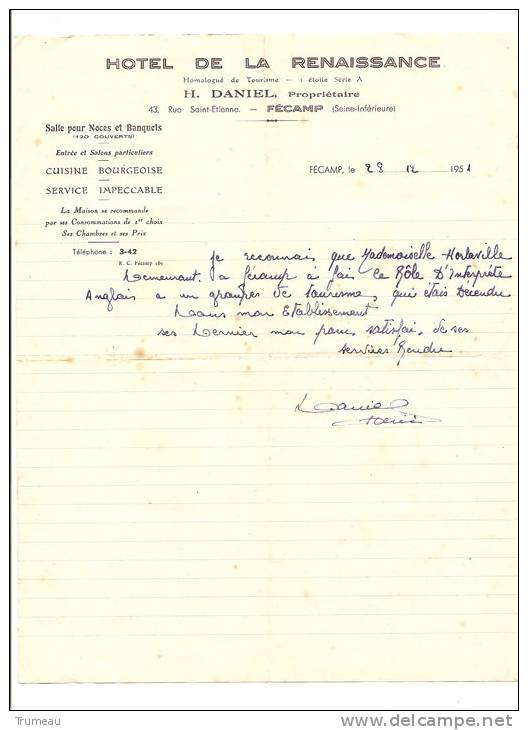 HOTEL DE LA RENAISSANCE
Homologué de Tourisme — 1 étoile Série A
H. DANIEL, Propriétaire
43, Rue Saint-Etienne. — FÉCAMP (Seine-Inférieure)
Salle pour Noces et Banquets
(120 COUVERTS)
Entrée et Salons particuliers
CUISINE BOURGEOISE
SERVICE IMPECCABLE
La Maison se recommande
par ses Consommations de 1er choix
Ses Chambres et ses Prix
Téléphone : 3-42
R. C. Fécamp 189
FÉCAMP, le 28 12 1951
je reconnais que Mademoiselle Horlaville
Demeurant. a fécamp à fait le Rôle D'Interprète
Anglais a un groupes de tourisme, qui étais Décendu
Dans mon Etablissement
ses Dernier mon parus satisfai. de ses
services Rendu
Daniel
Henri
Trumeau
delcampe.net